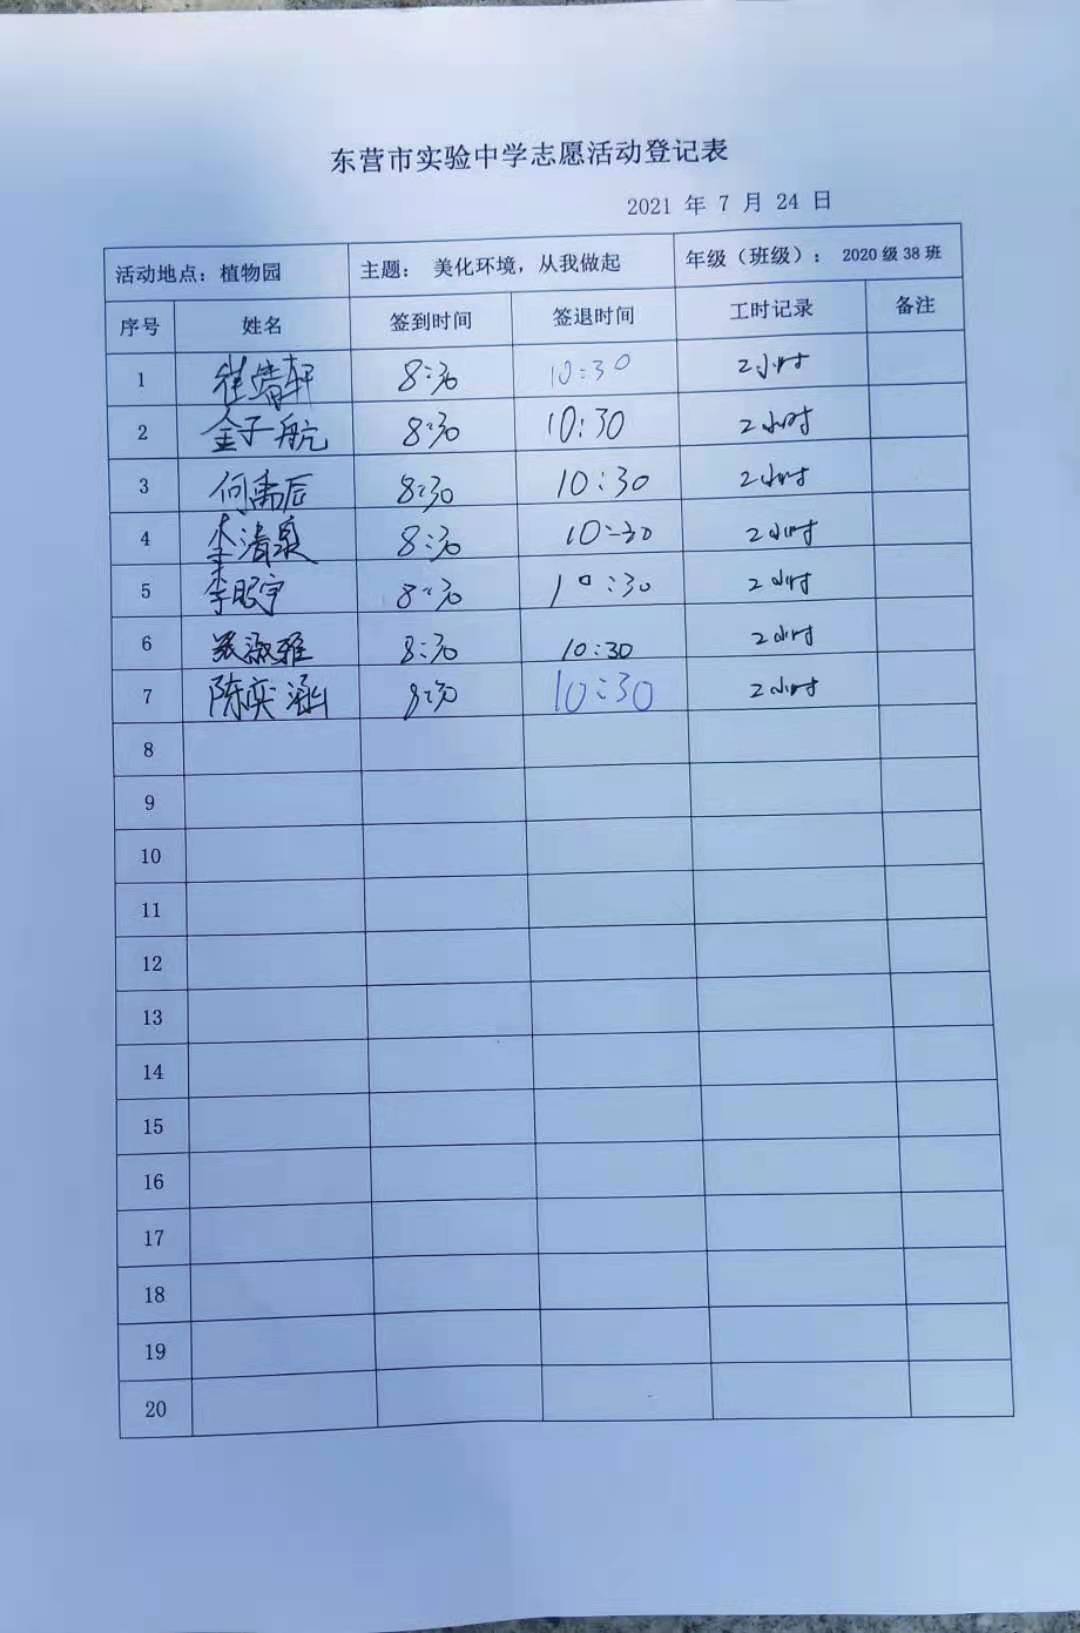 东营市实验中学志愿活动登记表
2021 年 7 月 24 日
活动地点：植物园 主题： 美化环境，从我做起 年级（班级）： 2020级38班
序号 姓名 签到时间 签退时间 工时记录 备注
1 崔靖轩 8:30 10:30 2小时
2 金子航 8:30 10:30 2小时
3 何禹辰 8:30 10:30 2小时
4 李清泉 8:30 10:30 2小时
5 李昭宇 8:30 10:30 2小时
6 淑雅 8:30 10:30 2小时
7 陈奕涵 8:30 10:30 2小时
8
9
10
11
12
13
14
15
16
17
18
19
20